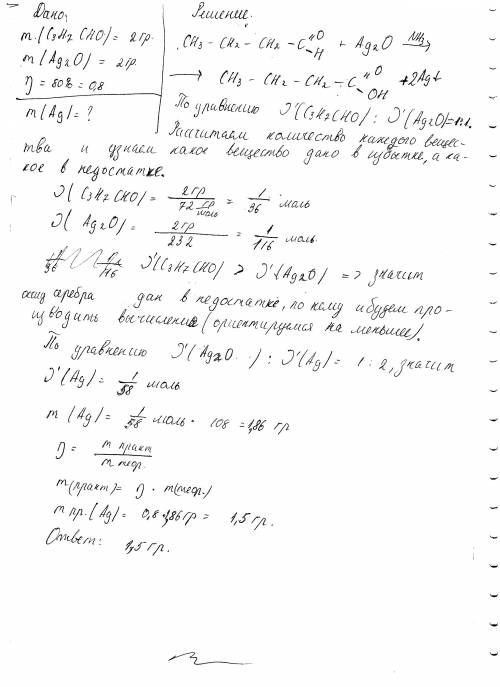 Дано:
m(C3H7CHO) = 2 гр.
m(Ag2O) = 2 гр.
η = 80% = 0,8
m(Ag) = ?
Решение.
CH3 - CH2 - CH2 - C =O - H + Ag2O NH3 →
→ CH3 - CH2 - CH2 - C =O - OH + 2Ag↓
По уравнению ν(C3H7CHO) : ν(Ag2O) = 1:1.
Рассчитаем количество каждого вещес-
тва и узнаем какое вещество дано в избытке, а ка-
кое в недостатке.
ν(C3H7CHO) = 2гр / 72 гр/моль = 1/36 моль
ν(Ag2O) = 2гр / 232 = 1/116 моль
ν(C3H7CHO) > ν(Ag2O) => значит
оксид серебра дан в недостатке, по нему и будем про-
изводить вычисления (ориентируемся на меньшее).
По уравнению ν(Ag2O) : ν(Ag) = 1 : 2, значит
ν(Ag) = 1/58 моль
m(Ag) = 1/58 моль · 108 = 1,86 гр
η = m практ / m теор.
m(практ) = η · m(теор.)
m пр.(Ag) = 0,8 · 1,86 гр = 1,5 гр.
Ответ: 1,5 гр.